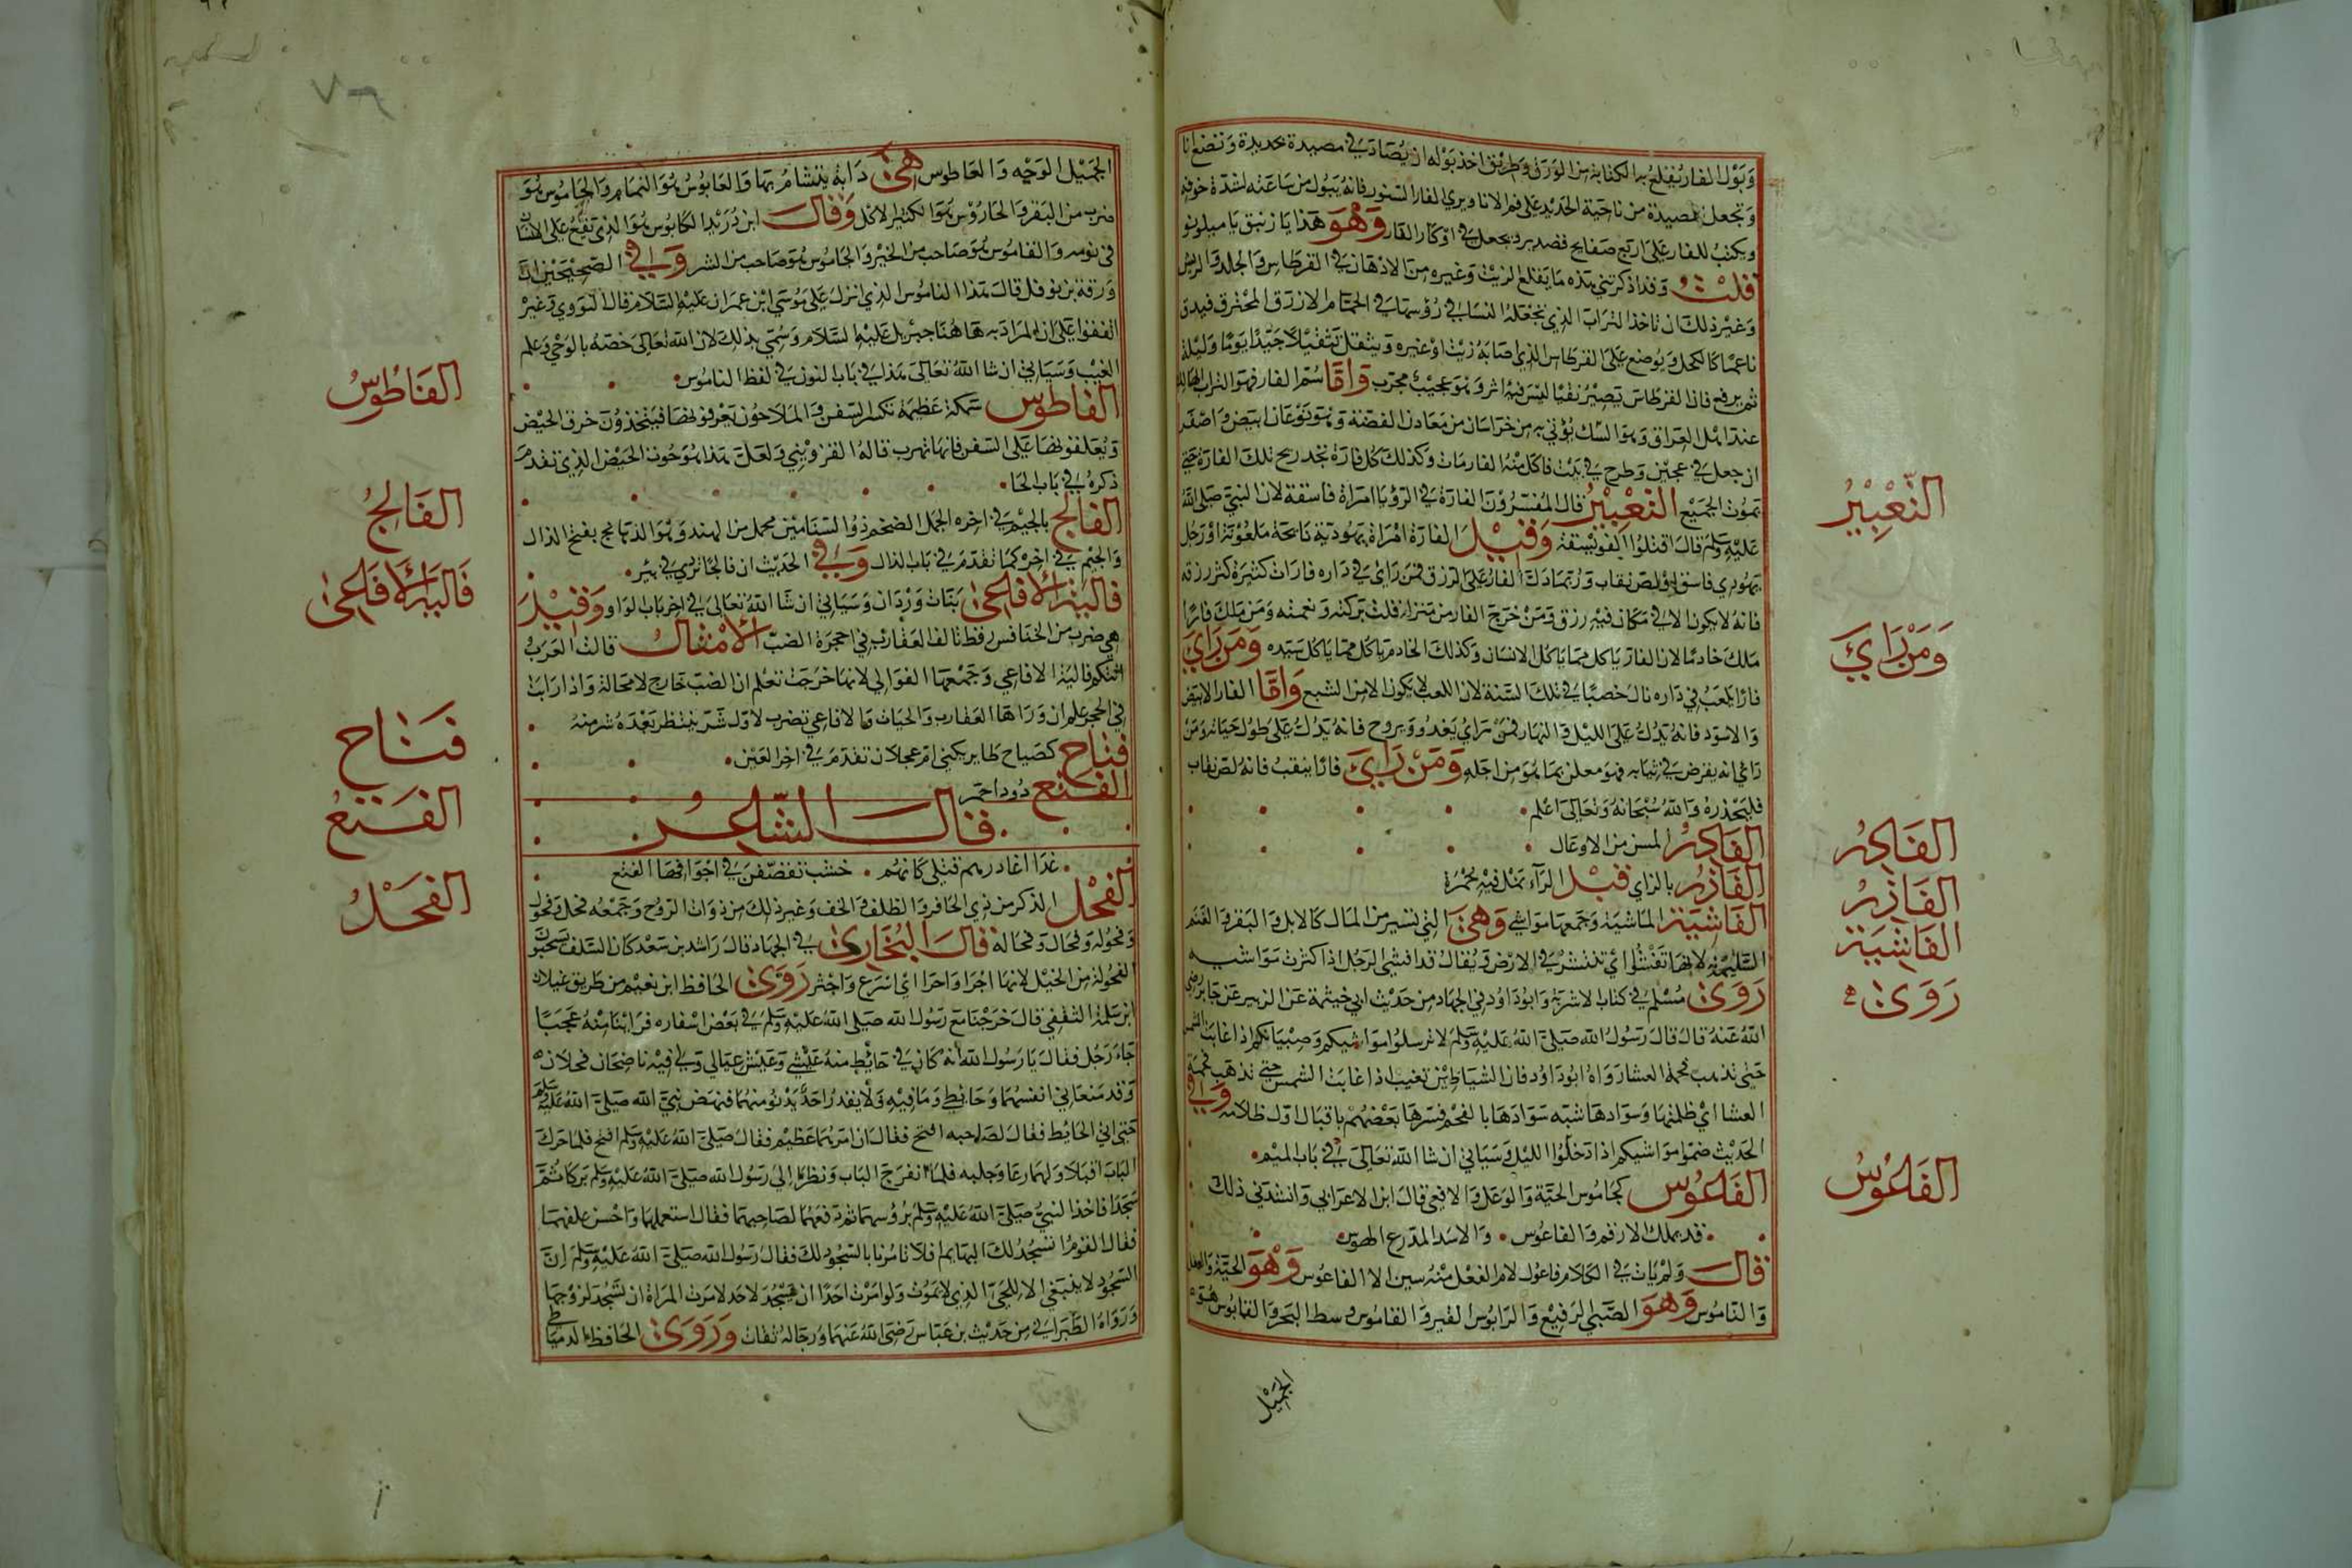 وَبَوْل الفار يُقلع به الكتابة من الورق وطريق اخذ بوله ان يُصاد في مصيدة حديدة وتضع انا
وتجعل المصيدة من ناحية الحديد على فم الانا ويري الفار السنور فانه يبول من ساعته لشدة خوفه
ويكتب للفار على اربع صفايح قصدير ويجعل في اوكار الفار وَهْوَ هذا يا زنبق يا
قلتُ وقد اذكرتني هذه ما يقلع الزيت وغيره من الادهان في القرطاس والجلد
وغير ذلك ان تاخذ التراب الذي تجعله النسا في رؤسها في الحمام الازرق المحترق فيدق
ناعمًا كالكحل ويوضع على القرطاس الذي اصابه زيت او غيره ويثقل تثقيلا جيّدًا يومًا وليلة
ثم يرفع فان القرطاس تصيرُ نقيا ليس فيه اثر وهو عجيب مجرب وَامّا سُم الفار فهو التراب الهالك
عند اهل العراق وهو الشك يؤتي به من خراسان من معادن الفضة وهو نوعان ابيض واصفر
ان جعل في عجين وطرح في بيت فاكل منه الفار مات وكذلك كل فارة تجد ريح تلك الفارة حتى
تموت الجميع التّعْبِيْرُ قال المفسرون الفارة في الرؤيا امراة فاسقة لان النبي صلى الله
عليه وسلم قال اقتلوا الفويسقة وَقِيْلَ الفارة امراة يهودية نايحة ملعونة او رجل
يهودي فاسق او لص نقاب وربما دل الفار على الرزق فمن راى في داره فارات كثيرة كثر رزقه
فانه لا يكون الا في مكان فيه رزق ومن خرج الفار من منزله قلت بركته ونعمته ومن ملك فارًا
ملك خادمًا لان الفار ياكل مما ياكل الانسان وكذلك الخادم ياكل مما ياكل سيده وَمَن رَاي
فارًا يلعب في داره نال خصبًا في تلك السنة لان اللعب لا يكون الا من الشبع وَامّا الفار الابيض
والاسود فانه يدل على الليل والنهار فمن راي يغدو ويروح فانه يدل على طول حياته ومن
راي انه يقرض في ثيابه فهو معلن بما هو من اجله وَمَنْ رَايَ فارًا ينقب فانه لص نقاب
فليحذره والله سبحانه وتعالى اعلم
الفَادِرُ المسن من الاوعال
الفَازِرُ بالزاي قبل الرآء نمل فيه حمرة
الفَاشِيَة الماشية وجمعها مواشي وَهْيَ التي تنتشر من المال كالابل والبقر والغنم
السليمة لانها تفشوا اي تنتشر في الارض ويقال قد افشى الرجل اذا كثرت مواشيه
رَوَى مُسْلم في كتاب الاشربة وابو داود في الجهاد من حديث ابي خيثمة عن الزبير عن جابر رضي
الله عنه قال قال رسول الله صلى الله عليه وسلم لا ترسلوا مواشيكم وصبيانكم اذا غابت الشمس
حتى تذهب فحمة العشار رواه ابو داود فان الشياطين تغيب اذا غابت الشمس حتى تذهب فحمة
العشا اي ظلمتها وسوادها شبه سوادها بالفحم فسرها بعضهم باقبال اول ظلامه وَفي
الحديث ضموا مواشيكم اذا دخلوا الليل وسياتي ان شا الله تعالى في باب الميم
الفَاعُوس كجاموس الحيّة والوعل والافعي قال ابن الاعرابي وانشدني ذلك
قد يهلك الارقم والفاعوس والاسد المدرع
قال ولم يات في الكلام فاعول لام الفعل منه سين الا الفاعوس وَهْوَ الحيّة
والناموس وَهوَ الصبي الرفيع والرابوس القبر والقاموس وسط البحر والقابوس هو
الجَمِيْل
التّعْبِيْرُ
وَمَنْ رَايَ
الفَادِرُ
الفَازِرُ
الفَاشِيَة
رَوَى
الفَاعُوسُ
الجميل الوجه والعاطوس هيَ دابة يتشام بها والعابوس هو النمام والجاموس هو
ضرب من البقر والحاروس هو الكثير الاكل وَقال ابن دريد الكابوس هو الذي يقع على الانسان
في نومه والقاموس هو صاحب من الخير والجاموس هو صاحب من الشر وَفي الصحيحين ان
ورقة بن نوفل قال هذا الناموس الذي انزل على موسي ابن عمران عليه السلام قال النووي وغيره
اتفقوا على ان المراد به هاهنا جبريل عليه السلام وسمي بذلك لان الله تعالى خصه بالوحي وعلم
الغيب وسياتي ان شا الله تعالى هذا في باب النون في لفظ الناموس
الفاطوس سمكة عظيمة تكسر السفن والملاحون يعرفونها فيتخذون خرق الحيض
ويعلقونها على السفن فانها تهرب قاله القزويني ولعل هذا هو حوت الحيض الذي تقدم
ذكره في باب الحا
الفالج بالجيم في اخره الجمل الضخم ذو السنامين محمل من الهند وهو الدهانج بفتح الدال
والجيم في اخره كما تقدم في باب الدال وَفي الحديث ان فالجا تردي في بير
فالية الافاعى بنات وردان وسياتي ان شا الله تعالى في اخر باب الواو وَقيْلَ
هي ضرب من الخنافس رقط تالف العقارب في احجرة الضب الامْثالُ قالت العرب
اتتكم فالية الافاعي وجمعها الفوالي لانها خرجت تعلم ان الضب خارج لا محالة واذا رايت
في الحجر علم ان وراها العقارب والحيات والافاعي تضرب لاول شر ينتظر بعده شر منه
فتاح كصياح طاير يكني ام عجلان تقدم في اخر العين
الفتع دود احمر
قال الشاعر
غدا اغادرهم قتلى كانهم خشب تقصفن في اجوافها الفتع
الفَحْل الذكر من ذي الحافر والظلف والخف وغير ذلك من ذوات الروح وجمعه فحل وفحول
وفحولة وفحال وفحالة قال البُخَاري في الجهاد قال راشد بن سعد كان السلف يستحبون
الفحولة من الخيل لانها اجرا واحرا اي اسرع واجثر رَوَى الحافظ ابن نعيم من طريق غيلان
ابن سلمة الثقفي قال خرجنا مع رسول الله صلى الله عليه وسلم في بعض اسفاره فراينا منه عجبًا
جاء رجل فقال يا رسول الله انه كان في حائط منه عيشي وعيش عيالي ولي فيه ناضحان فحلان
وقد منعاني انفسهما وحائطي وما فيه ولا يقدر احد يدنو منهما فنهض نبي الله صلى الله عليه وسلم
حتى اتي الحائط فقال لصاحبه افتح فقال ان امرهما عظيم فقال صلى الله عليه وسلم افتح فلما حرك
الباب اقبلا ولهما رغا وجلبه فلما انفرج الباب ونظرا الي رسول الله صلى الله عليه وسلم بركا ثم
سجدا فاخذ النبي صلى الله عليه وسلم برؤسهما ثم دفعهما لصاحبهما فقال استعملها واحسن علفهما
فقال القوم تسجد لك البهايم افلا تامرنا بالسجود لك فقال رسول الله صلى الله عليه وسلم ان
السجود لا ينبغي الا للحي الذي لا يموت ولو امرت احدًا ان يسجد لاحد لامرت المراة ان تسجد لزوجها
ورواه الطبراني من حديث بن عباس رضي الله عنهما ورجاله ثقات وَرَوَى الحافظ الدمياطي
الفَاطُوسُ
الفَالِجُ
فَاليَة الافَاعى
فَتَاح
الفَتَعُ
الفَحْلُ